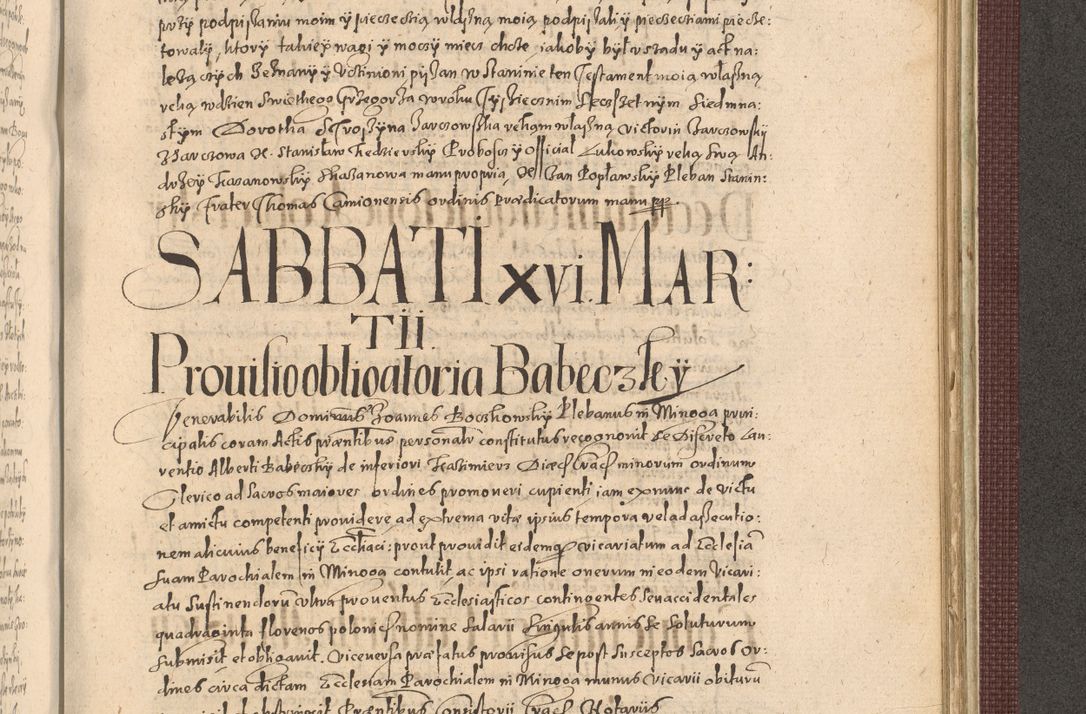 przÿ podpisaniu moim ÿ pieczęcią własną moią podpisali ÿ pieczęciami piecze:
towalÿ, ktorÿ takieÿ wagi ÿ moczÿ miecz chcę iakobÿ bÿł u sądu ÿ act na:
leżączÿch zeznanÿ ÿ uczÿnioni pisan w Staninie ten Testament moią własną
ręką w dzien Swiethego Grzegorza w roku Tÿsiecznim Szesczsetnÿm Siedmna:
stÿm Dorotha Strosÿna Jarczowska ręką własną Victorin Jarczowskÿ
z Jarczowa X. Stanisław Kedzierskÿ Proboscz ÿ Official Lukowskÿ ręką swą An:
drzeÿ Kazanowskÿ z Kazanowa manu propria, X Jan Popławskÿ Pleban Stanin:
skÿ Frater Thomas Camionensis ordinis Prædicatorum manu pp.
SABBATI XVI. MAR:
TII
Prouisio obligatoria Babeczkÿ
Venerabilis Dominus Joannes Boczkowskÿ Plebanus in Minoga prin:
cipalis coram Actis præntibus personalr constitutus recognovit se Discreto Lau:
rentio Alberti Babeczskÿ de inferiori Kazimierz Diæcs Cracs minorum ordinum
Clerico ad sacros maiores ordines promoveri cupienti iam ex nunc de victu
et amictu competenti providere ad extrema vitæ ipsius tempora vel ad assecutio:
nem alicuius beneficÿ Eccliaci: prout providit eidemq vicariatum ad Ecclesiã
suam Parochialem in Minoga contulit, ac ipsi ratione onerum in eodem Vicari:
atu sustinendorũ ultra proventus Ecclesiasticos contingentes seu accidentales
quadraginta florenos polonics nomine salarii singulis annis se soluturum
submisit et obligavit. Vice versa præfatus provisus se post susceptos sacros or:
dines circa dictam Ecclesiam Parochialem in Minoga munus vicarii obiturũ
Præntibus Consistorii Cracs Notariis